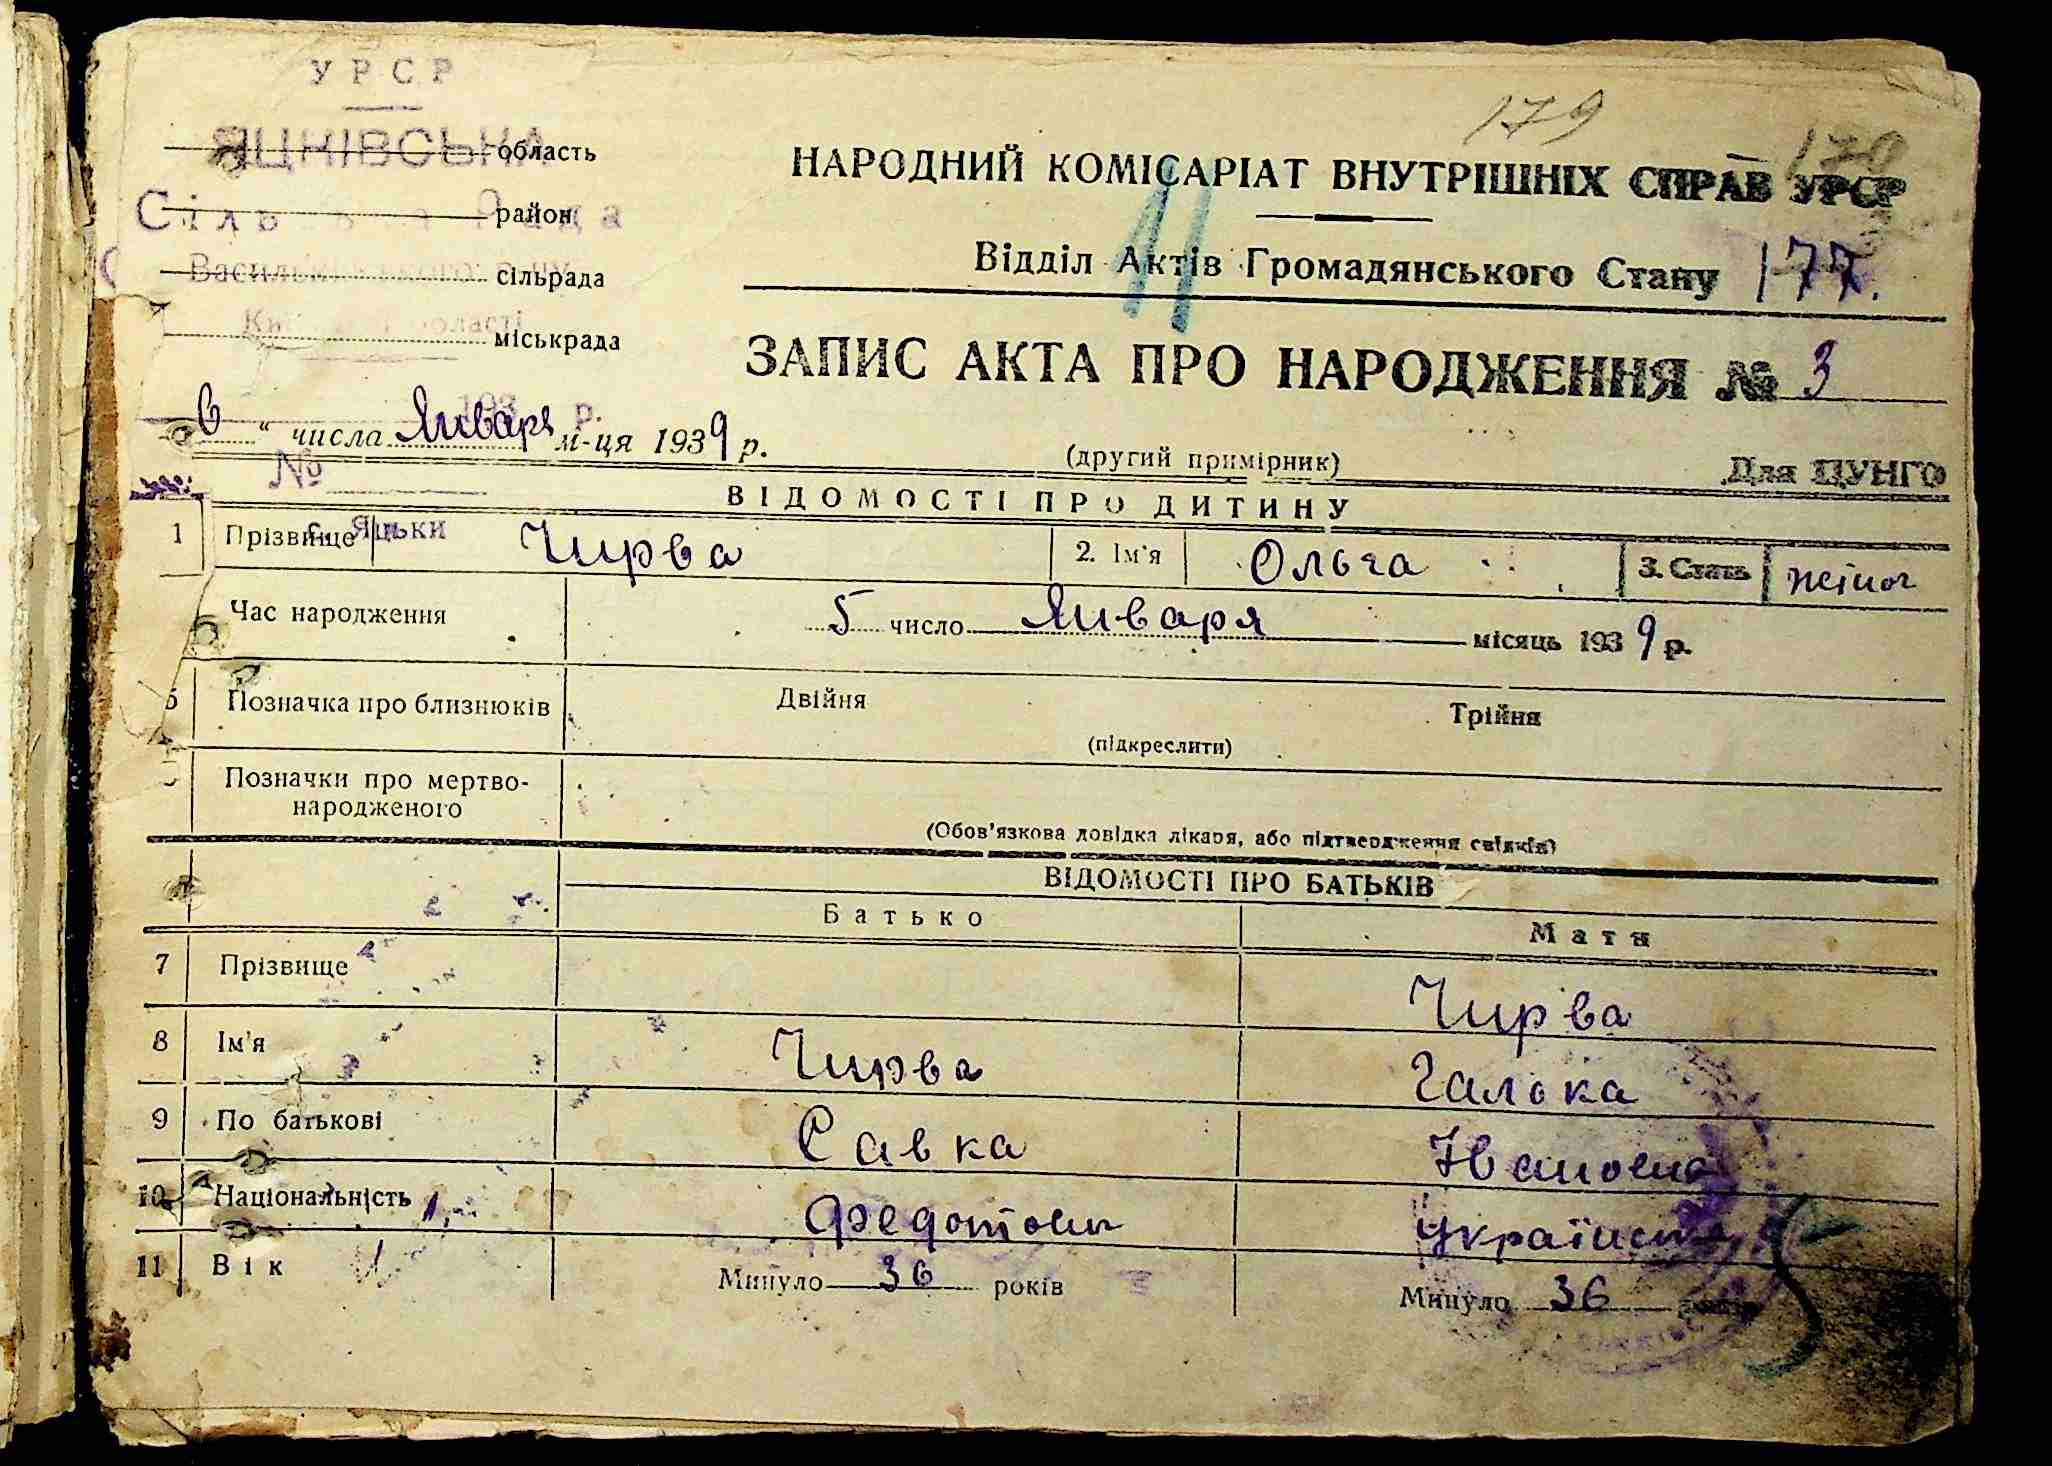 УРСР
179
ЯЦКІВСЬКА область
НАРОДНИЙ КОМІСАРІАТ ВНУТРІШНІХ СПРАВ УРСР
район
Відділ Актів Громадянського Стану 177.
сільрада
області
міськрада
ЗАПИС АКТА ПРО НАРОДЖЕННЯ № 3
6 " числа Января м-ця 1939 р.
(другий примірник)
Для ЦУНГО
№
ВІДОМОСТІ ПРО ДИТИНУ
с. Яцьки
1 Прізвище Чирва 2. Ім'я Ольга 3. Стать жіноч
Час народження 5 число Января місяць 1939 р.
5 Позначка про близнюків Двійня Трійня
(підкреслити)
Позначки про мертво-
народженого
(Обов'язкова довідка лікаря, або підтвердження свідків)
ВІДОМОСТІ ПРО БАТЬКІВ
Батько Мати
7 Прізвище Чирва
8 Ім'я Чирва Галька
9 По батькові Савка Івановна
10 Національність Федотович українка
11 Вік Минуло 36 років Минуло 36 років